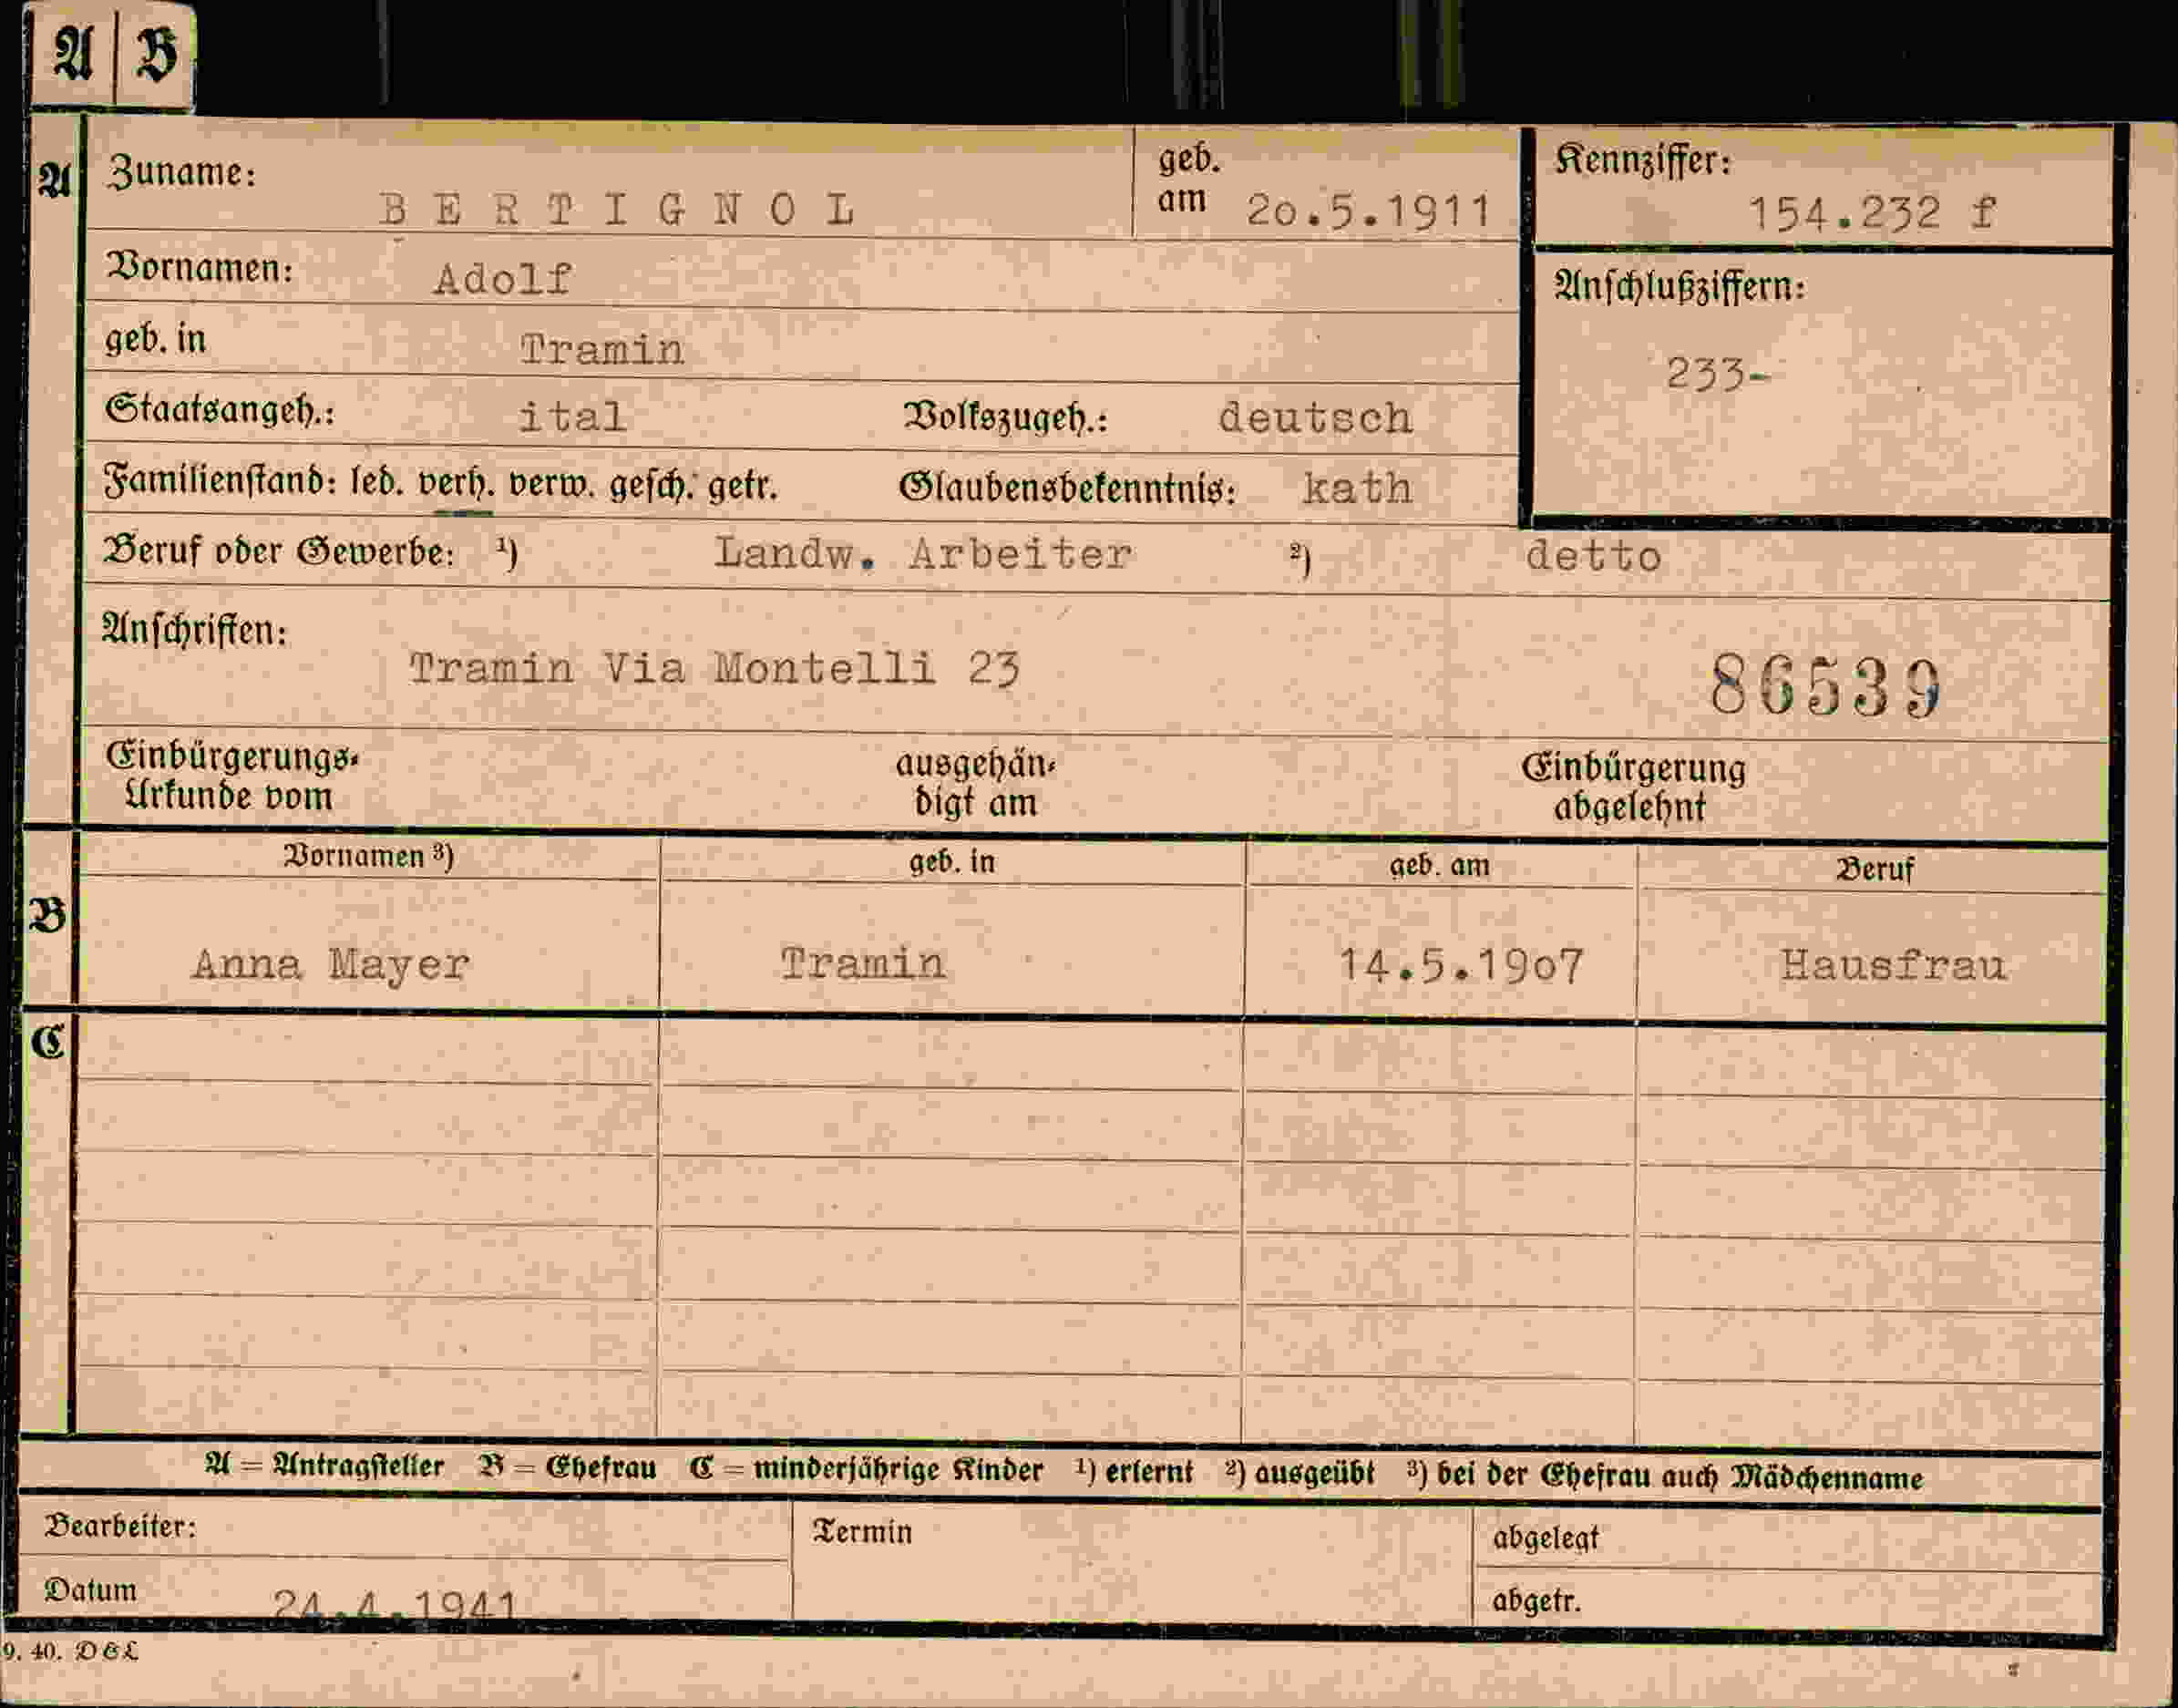 A B
A Zuname: BERTIGNOL geb. am 2o.5.1911 Kennziffer: 154.232 f
Vornamen: Adolf Anschlußziffern:
geb. in Tramin 233-
Staatsangeh.: ital Volkszugeh.: deutsch
Familienstand: led. verh. verw. gesch. getr. Glaubensbekenntnis: kath
Beruf oder Gewerbe: ¹) Landw. Arbeiter ²) detto
Anschriften: Tramin Via Montelli 23 86539
Einbürgerungs- ausgehän- Einbürgerung
Urkunde vom digt am abgelehnt
Vornamen ³) geb. in geb. am Beruf
B Anna Mayer Tramin 14.5.19o7 Hausfrau
C
A = Antragsteller B = Ehefrau C = minderjährige Kinder ¹) erlernt ²) ausgeübt ³) bei der Ehefrau auch Mädchenname
Bearbeiter: Termin abgelegt
Datum 24.4.1941 abgetr.
9. 40. DEL